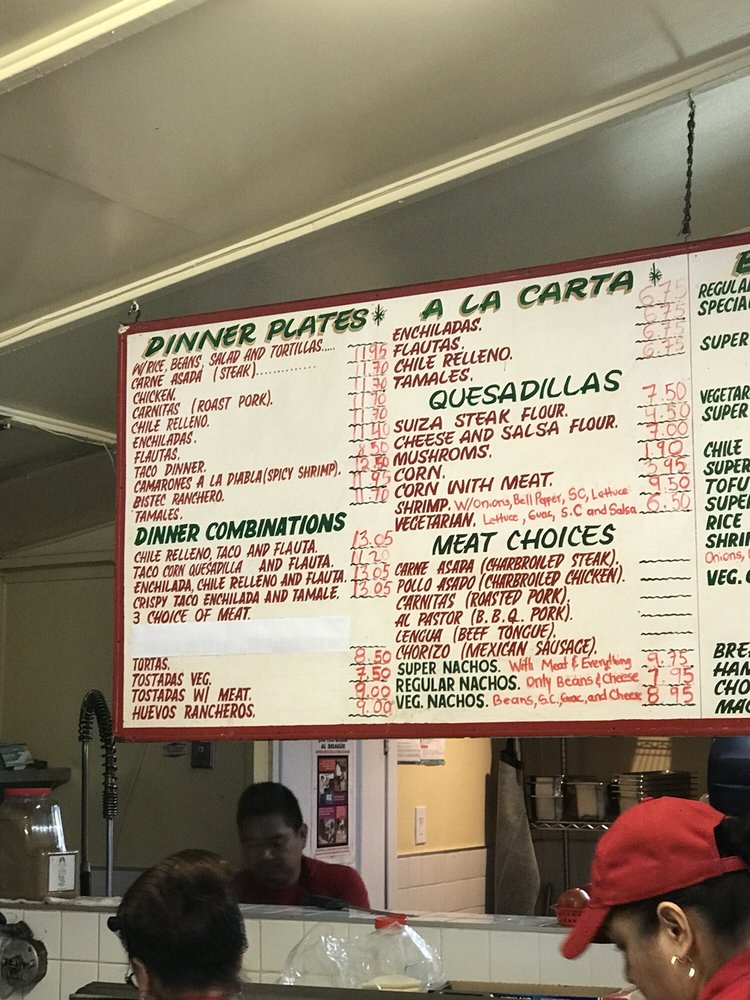 DINNER PLATES*
W/RICE, BEANS, SALAD AND TORTILLAS.....
CARNE ASADA (STEAK).............. 11.95
CHICKEN. 11.70
CARNITAS (ROAST PORK). 11.70
CHILE RELLENO. 11.70
ENCHILADAS. 11.70
FLAUTAS. 11.40
TACO DINNER. 8.50
CAMARONES A LA DIABLA (SPICY SHRIMP). 12.50
BISTEC RANCHERO. 11.95
TAMALES. 11.70
DINNER COMBINATIONS
CHILE RELLENO, TACO AND FLAUTA. 13.05
TACO CORN QUESADILLA AND FLAUTA. 11.20
ENCHILADA, CHILE RELLENO AND FLAUTA. 13.05
CRISPY TACO ENCHILADA AND TAMALE. 13.05
3 CHOICE OF MEAT.
TORTAS. 8.50
TOSTADAS VEG. 7.50
TOSTADAS W/ MEAT. 9.00
HUEVOS RANCHEROS. 9.00
A LA CARTA *
ENCHILADAS. 6.75
FLAUTAS. 6.75
CHILE RELLENO. 6.75
TAMALES. 6.75
QUESADILLAS
SUIZA STEAK FLOUR. 7.50
CHEESE AND SALSA FLOUR. 4.50
MUSHROMS. 7.00
CORN. 1.90
CORN WITH MEAT. 3.95
SHRIMP. W/Onions, Bell Pepper, SC, Lettuce 9.50
VEGETARIAN. Lettuce, Guac, S.C and Salsa 6.50
MEAT CHOICES
CARNE ASADA (CHARBROILED STEAK).
POLLO ASADO (CHARBROILED CHICKEN).
CARNITAS (ROASTED PORK).
AL PASTOR (B.B.Q. PORK).
LENGUA (BEEF TONGUE).
CHORIZO (MEXICAN SAUSAGE).
SUPER NACHOS. With Meat & Everything 9.75
REGULAR NACHOS. Only Beans & Cheese 7.95
VEG. NACHOS. Beans, S.C, Guac, and Cheese 8.95
SUPER
SUPER
CHILE
SUPER
TOFU
SUPER
RICE
Onions,
VEG.